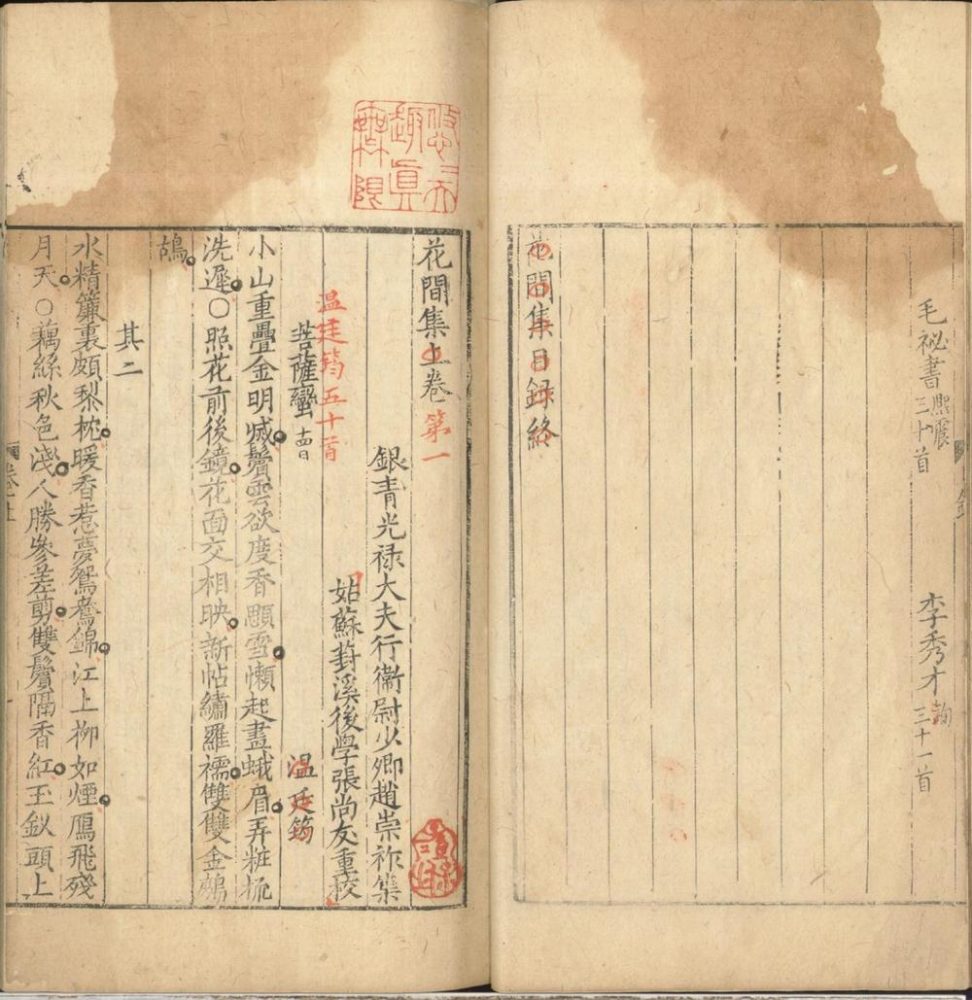 毛祕書熙震三十首 李秀才珣三十一首
花間集目録終
花間集上卷第一
銀青光禄大夫行衞尉少卿趙崇祚集
姑蘇葑溪後学張尚友重校
温廷筠五十首
菩薩蠻十四首 温廷筠
小山重疊金明㓕鬢雲欲度香顋雪懶起畫蛾眉弄粧梳
洗遲○照花前後鏡花面交相映新帖繡羅襦雙雙金鷓
鴣
其二
水精簾裏頗梨枕暖香惹夢鴛鴦錦江上柳如煙鴈飛殘
月天○藕絲秋色淺人勝參差剪雙鬢隔香紅玉釵頭上